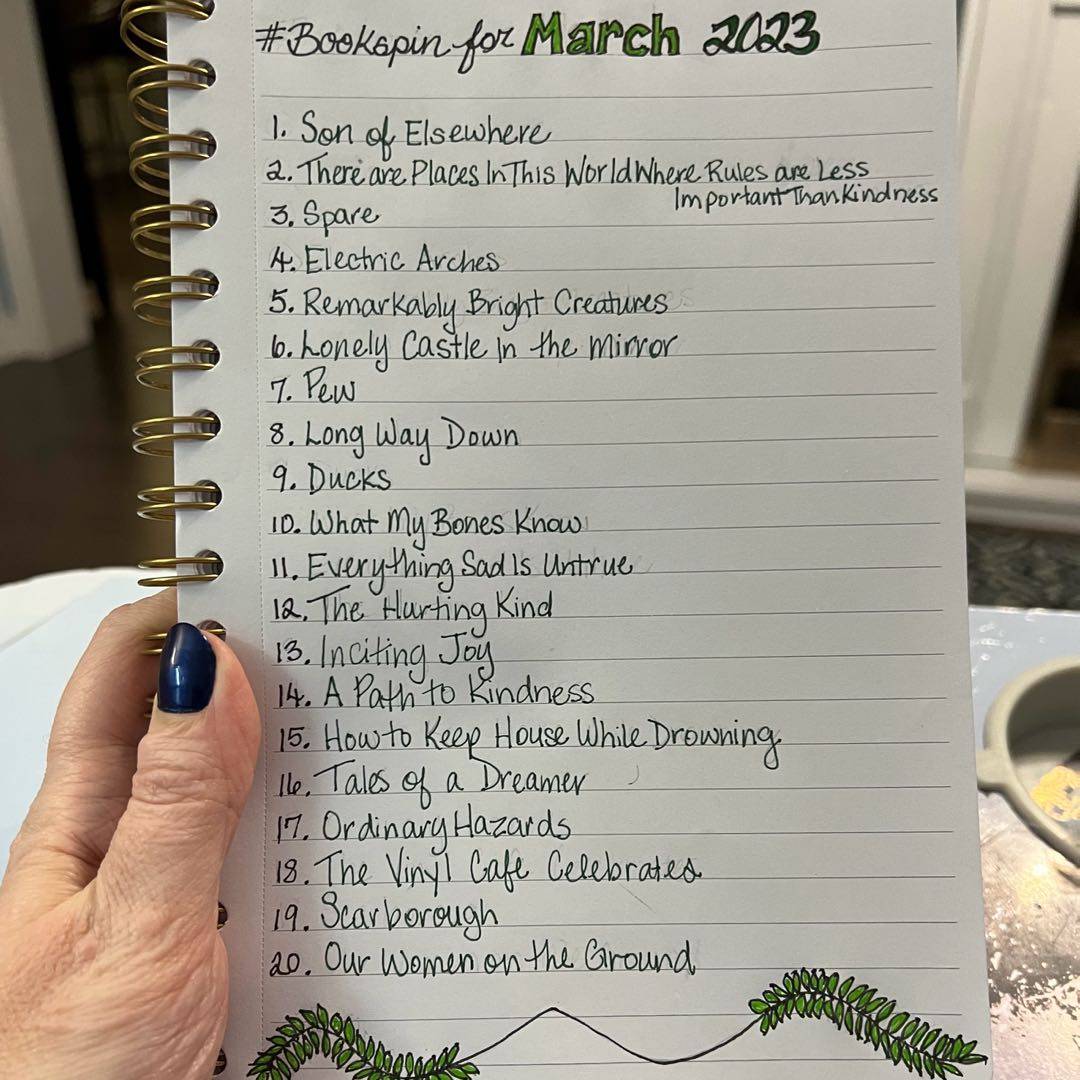 #Bookspin for March 2023
1. Son of Elsewhere
2. There are Places In This World Where Rules are Less
Important Than Kindness
3. Spare
4. Electric Arches
5. Remarkably Bright Creatures
6. Lonely Castle In the Mirror
7. Pew
8. Long Way Down
9. Ducks
10. What My Bones Know
11. Everything Sad Is Untrue
12. The Hurting Kind
13. Inciting Joy
14. A Path to Kindness
15. How to Keep House While Drowning
16. Tales of a Dreamer
17. Ordinary Hazards
18. The Vinyl Cafe Celebrates
19. Scarborough
20. Our Women on the Ground